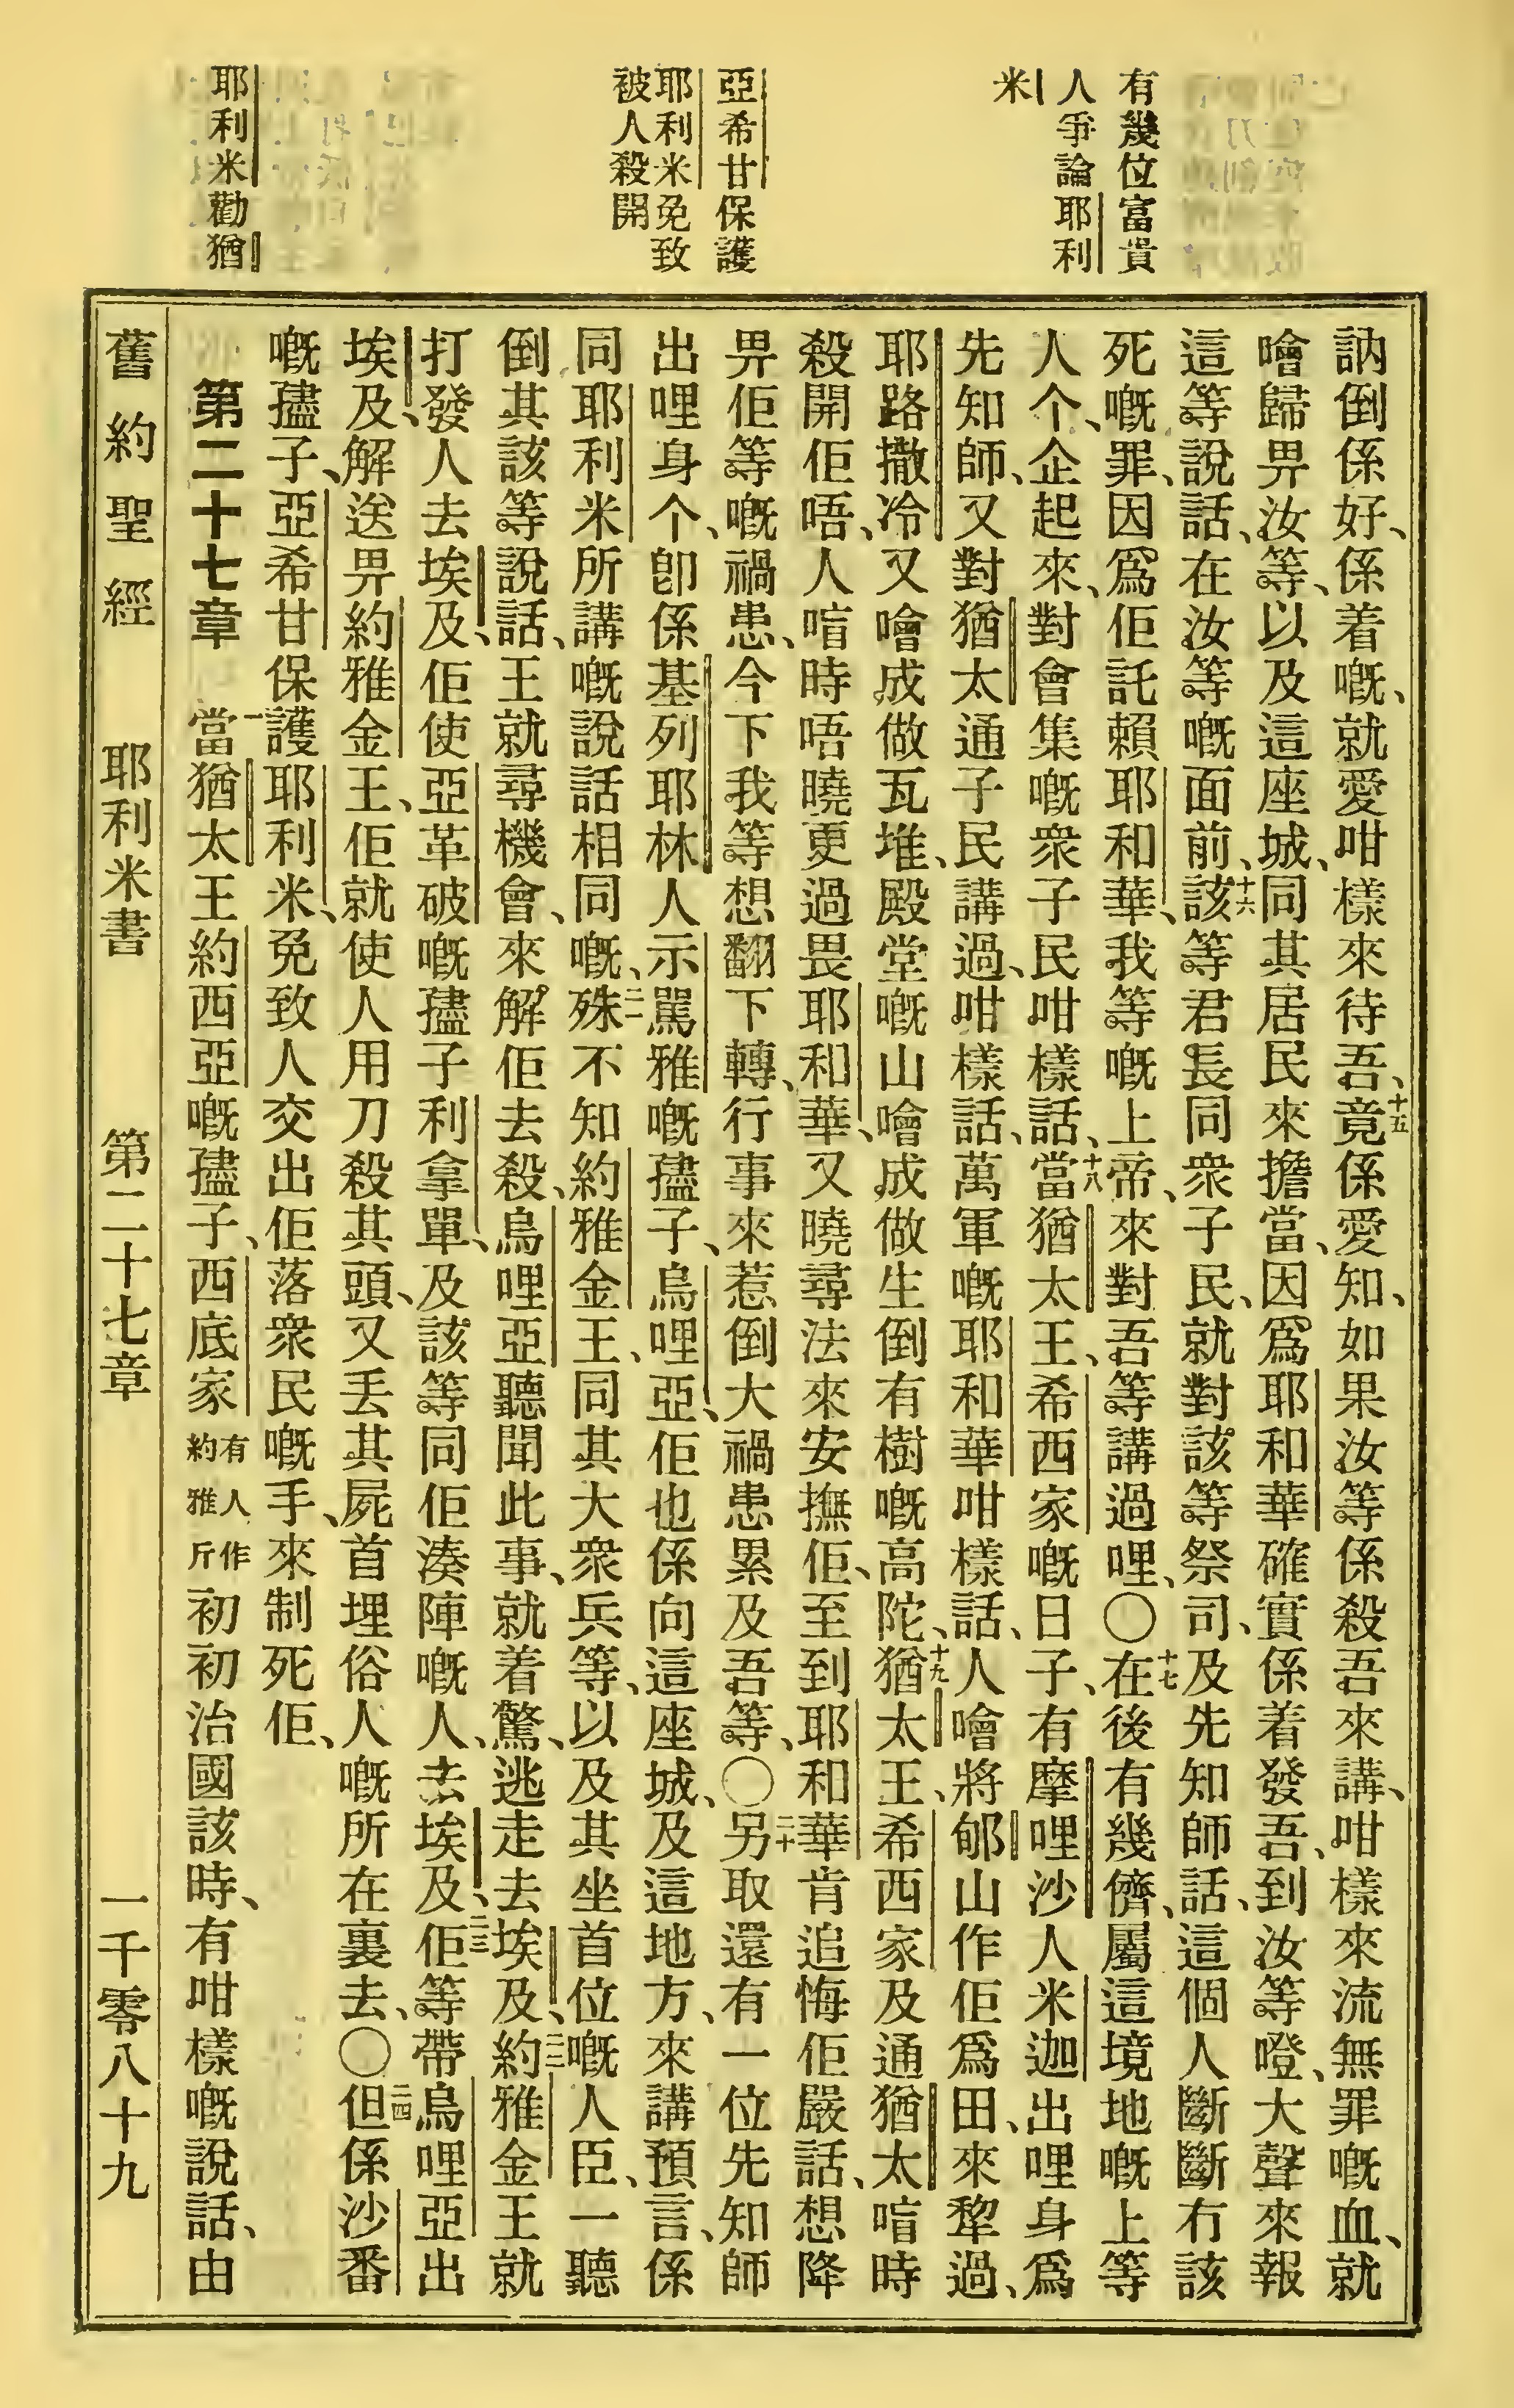 有幾位富貴
人爭論耶利
米
亞希甘保護
耶利米免致
被人殺開
耶利米勸猶
訥倒係好、係着嘅、就愛咁樣來待吾、十五竟係愛知、如果汝等係殺吾來講、咁樣來流無罪嘅血、就
噲歸畀汝等、以及這座城、同其居民來擔當、因爲耶和華確實係着發吾、到汝等嶝、大聲來報
這等說話、在汝等嘅面前、十六該等君長同衆子民、就對該等祭司、及先知師話、這個人斷斷冇該
死嘅罪、因爲佢託賴耶和華、我等嘅上帝、來對吾等講過哩、〇十七在後有幾儕、屬這境地嘅上等
人个、企起來、對會集嘅衆子民咁樣話、十八當猶太王、希西家嘅日子、有摩哩沙人米迦出哩身爲
先知師、又對猶太通子民講過、咁樣話、萬軍嘅耶和華咁樣話、人噲將郇山作佢爲田、來犂過、
耶路撒冷又噲成做瓦堆、殿堂嘅山噲成做生倒有樹嘅高陀、十九猶太王、希西家及通猶太喑時
殺開佢唔、人喑時唔曉更過畏耶和華、又曉尋法來安撫佢、至到耶和華肯追悔佢嚴話、想降
畀佢等嘅禍患、今下我等想翻下轉、行事來惹倒大禍患累及吾等、〇二十另取還有一位先知師
出哩身个、卽係基列耶林人示罵雅嘅孻子、烏哩亞、佢也係向這座城、及這地方、來講預言、係
同耶利米所講嘅說話相同嘅、二一殊不知約雅金王、同其大衆兵等、以及其坐首位嘅人臣、一聽
倒其該等說話、王就尋機會、來解佢去殺、烏哩亞聽聞此事、就着驚、逃走去埃及、二二約雅金王就
打發人去埃及、佢使亞革破嘅孻子利拿單、及該等同佢湊陣嘅人、去埃及、二三佢等帶烏哩亞出
埃及、解送畀約雅金王、佢就使人用刀殺其頭、又丢其屍首埋俗人嘅所在裏去、〇二四但係沙番
嘅孻子、亞希甘保護耶利米、免致人交出佢落衆民嘅手、來制死佢、
第二十七章　一當猶太王約西亞嘅孻子、西底家有人作約雅斤初初治國該時、有咁樣嘅說話、由
舊約聖經　耶利米書　第二十七章　一千零八十九